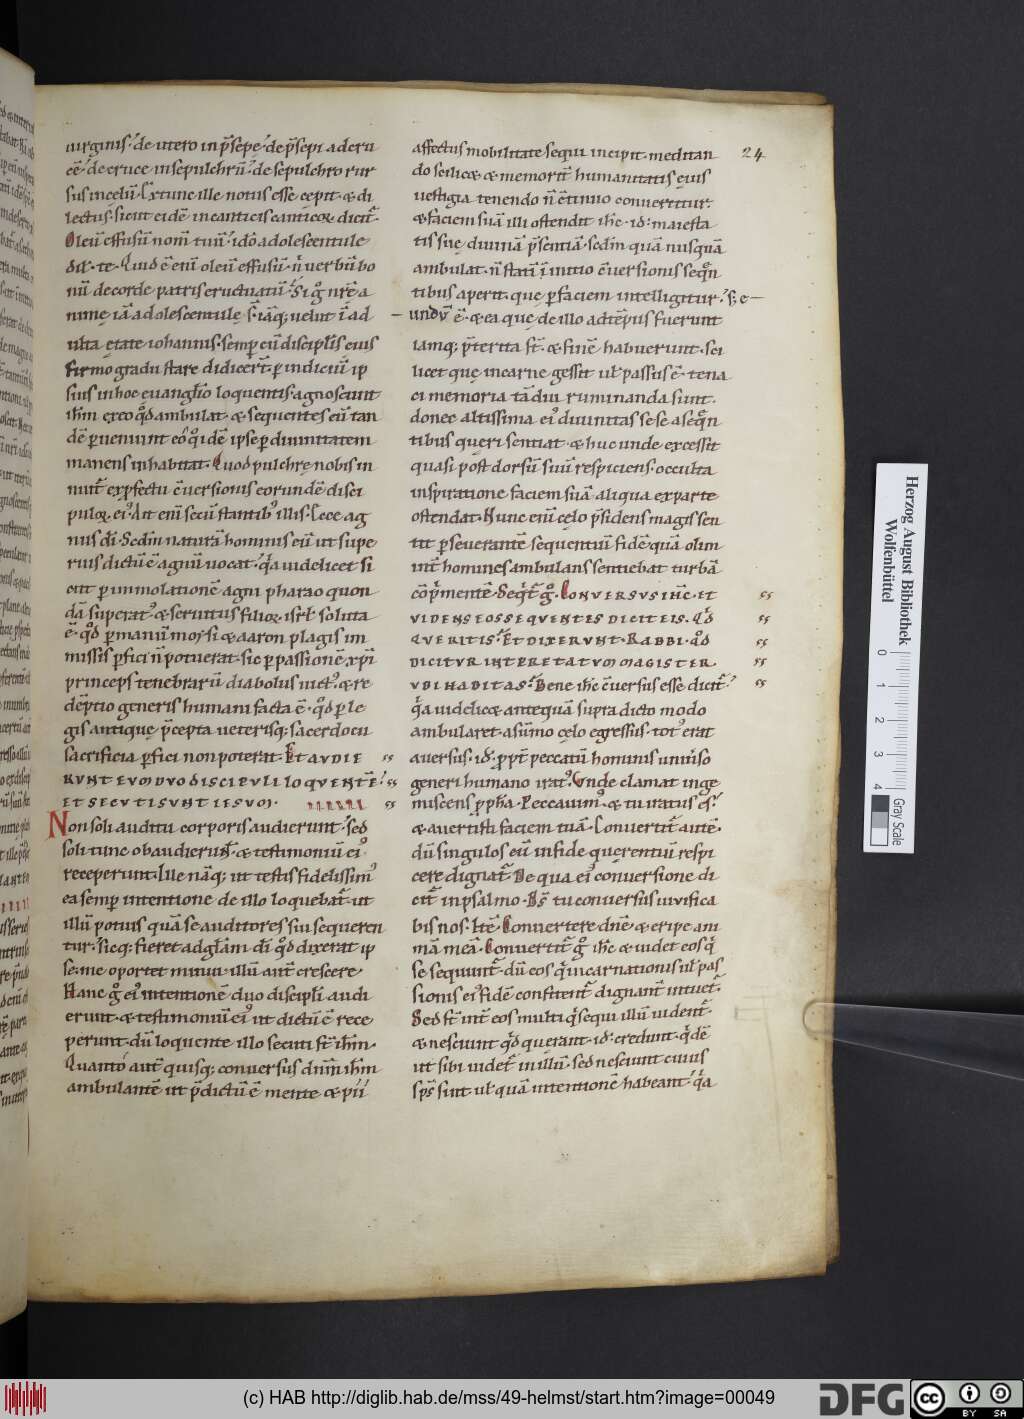 uirginis. de utero in p̄sepe. de p̄sepi ad cru
cē. de cruce in sepulchrū. de sepulchro rur
sus in celū. Extunc ille notus esse cepit. & di
lectus. sicut eidē in canticis canticoꝝ dicit̄.
Oleū effusū nom̄ tuū. ido adolescentule
dil̄. te. Quid ē enī oleū effusū. n̄ uerbū bo
nū de corde patris eructuatū. Si g̊ nrē a
nime iā adolescentulę s̄. iāq; uelut ī ad
ulta ętate iohannis. semꝑ cū discipl̄is eius
firmo gradu stare didicer̄t. ꝑ indiciū ip
sius in hoc euanglīo loquentis. agnoscunt
ihm̄ ex eo qd̊ ambulat. & sequentes eū tan
dē ꝑueniunt eo q̊ idē ipse ꝑ diuinitatem
manens inhabitat. Quod pulchrę nobis in
nuit̄ ex ꝓfectu c̄uersionis eorundē disci
puloꝝ ei᾿. Ait enī secū stantib᾿ illis. Ecce ag
nus dī. Sedm̄ naturā hominis eū ut supe
rius dictū ē agnū uocat. q̓a uidelicet si
cut ꝑ immolationē agni pharao quon
dā superat᾿. & seruitus filioꝝ isrl̄ soluta
ē. qd̊ ꝑ manū moysi & aaron plagis im
missis ꝑfici n̄ potuerat. sic ꝑ passionē xpī
princeps tenebrarū diabolus uict᾿. & re
dēptio generis humani facta ē. qd̊ ꝑ le
gis antiquę p̄cepta ueterisq; sacerdocii
sacrificia ꝑfici non poterat. Et avdie
rvnt evm dvo discipvli loqventē.
et secvti svnt iesvm.
Non soli auditu corporis audierunt. sed
soli tunc obaudierun̄t. & testimoniū ei᾿
receperunt. Ille nāq; ut testis fidelissim᾿
ea semꝑ intentione de illo loquebat̄. ut
illū potius quā se auditores sui sequeren
tur. sicq; fieret ad glām dī qd̊ dixerat ip
se. me oportet minui. illū aut̄ crescere.
Hanc g̊ ei᾿ intentionē duo discipl̄i audi
erunt. & testimoniū ei᾿ ut dictū ē rece
perunt. dū loquente illo secuti st̄ ihm̄.
Quanto aut̄ quisq; conuersus dnm̄ ihm̄
ambulantē ut p̄dictū ē mente & pii
24
affectus mobilitate sequi incipit. meditan
do scilicet & memorit̄ humanitatis ęius
uestigia tenendo n̄ c̄tinuo conuertitur.
& faciem suā illi ostendit ihc̄. id. maiesta
tis suę diuinā p̄sentiā. sedm̄ quā nusquā
ambulat. n̄ statī ī initio c̄uersionis seqn̄
tibus aperit. que ꝑ faciem intelligitur. s; e
undū ē. & ea que de illo ad tēpus fuerunt
iamq; p̄terita st̄. & finē habuerunt. sci
licet quę in carne gessit ul̄ passus ē. tena
ci memoria tādiu ruminanda sunt.
donec altissima ei᾿ diuinitas sese a seqn̄
tibus queri sentiat. & huc unde excessit
quasi post dorsū suū respiciens. occulta
inspiratione faciem suā aliqua ex parte
ostendat. Nunc enī cęlo p̄sidens magis sen
tit ꝑseuerantē sequentiū fidē. quā olim
int̄ homines ambulans sentiebat turbā
cōp̄mentē. Seqt̄ g̊. Conversvs ihc̄. et
videns eos seqventes dicit eis. Qd̓
qveritis. Et dixervnt. Rabbi. qd̊
dicitvr interetatvm magister.
vbi habitas. Bene ihc̄ c̄uersus esse dicit̄.
q̓a uidelicet antequā supra dicto modo
ambularet. a sūmo cęlo egressus. tot᾿ erat
auersus. id. ꝓpt̄ peccatū hominis uniūso
generi humano irat᾿. Unde clamat inge
miscens ꝓpha. Peccauim᾿. & tu iratus es.
& auertisti faciem tuā. Conuertit̄ autē.
dū singulos eū in fide querentiū respi
cere dignat̄. De qua ei᾿ conuersione di
cit̄ in psalmo. Ds̄ tu conuersus uiuifica
bis nos. Itē. Conuertere dnē. & eripe ani
mā meā. Conuertit̄ g̊ ihc̄ & uidet eos q̓
se sequunt̄. dū eos q̓ incarnationis ul̄ pas
sionis ei᾿ fidē confitent̄ dignant̄ intuet̄.
Sed st̄ int̄ eos multi q̓ sequi illū uident̄.
& nesciunt qd̊ querant. id. credunt q̓dē
ut sibi uidet̄ in illū. sed nesciunt cuius
sps̄ sint. ul̄ quā intentionē habeant. q̓a
Herzog August Bibliothek
Wolfenbüttel
0 1 2 3 4
Gray Scale
(c) HAB http://diglib.hab.de/mss/49-helmst/start.htm?image=00049
DFG
cc BY SA